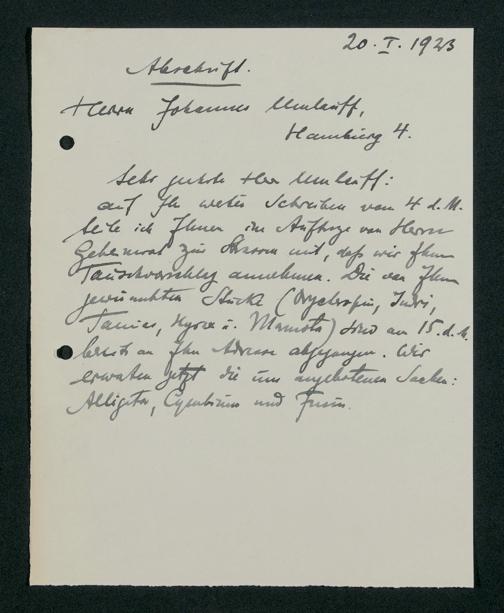 20. I. 1923
Abschrift.
Herrn Johannes Umlauff,
Hamburg 4.
Sehr geehrter Herr Umlauff:
auf Ihr wertes Schreiben vom 4 d. M.
teile ich Ihnen im Auftrage von Herrn
Geheimrat zur Strassen mit, daß wir Ihren
Tauschvorschlag annehmen. Die von Ihnen
gewünschten Stücke (Indri,
Hyrax u. ) sind am 15. d. M.
bereits an Ihre Adresse abgegangen. Wir
erwarten jetzt die uns angebotenen Sachen:
Alligator, Cymbium und Fusus.